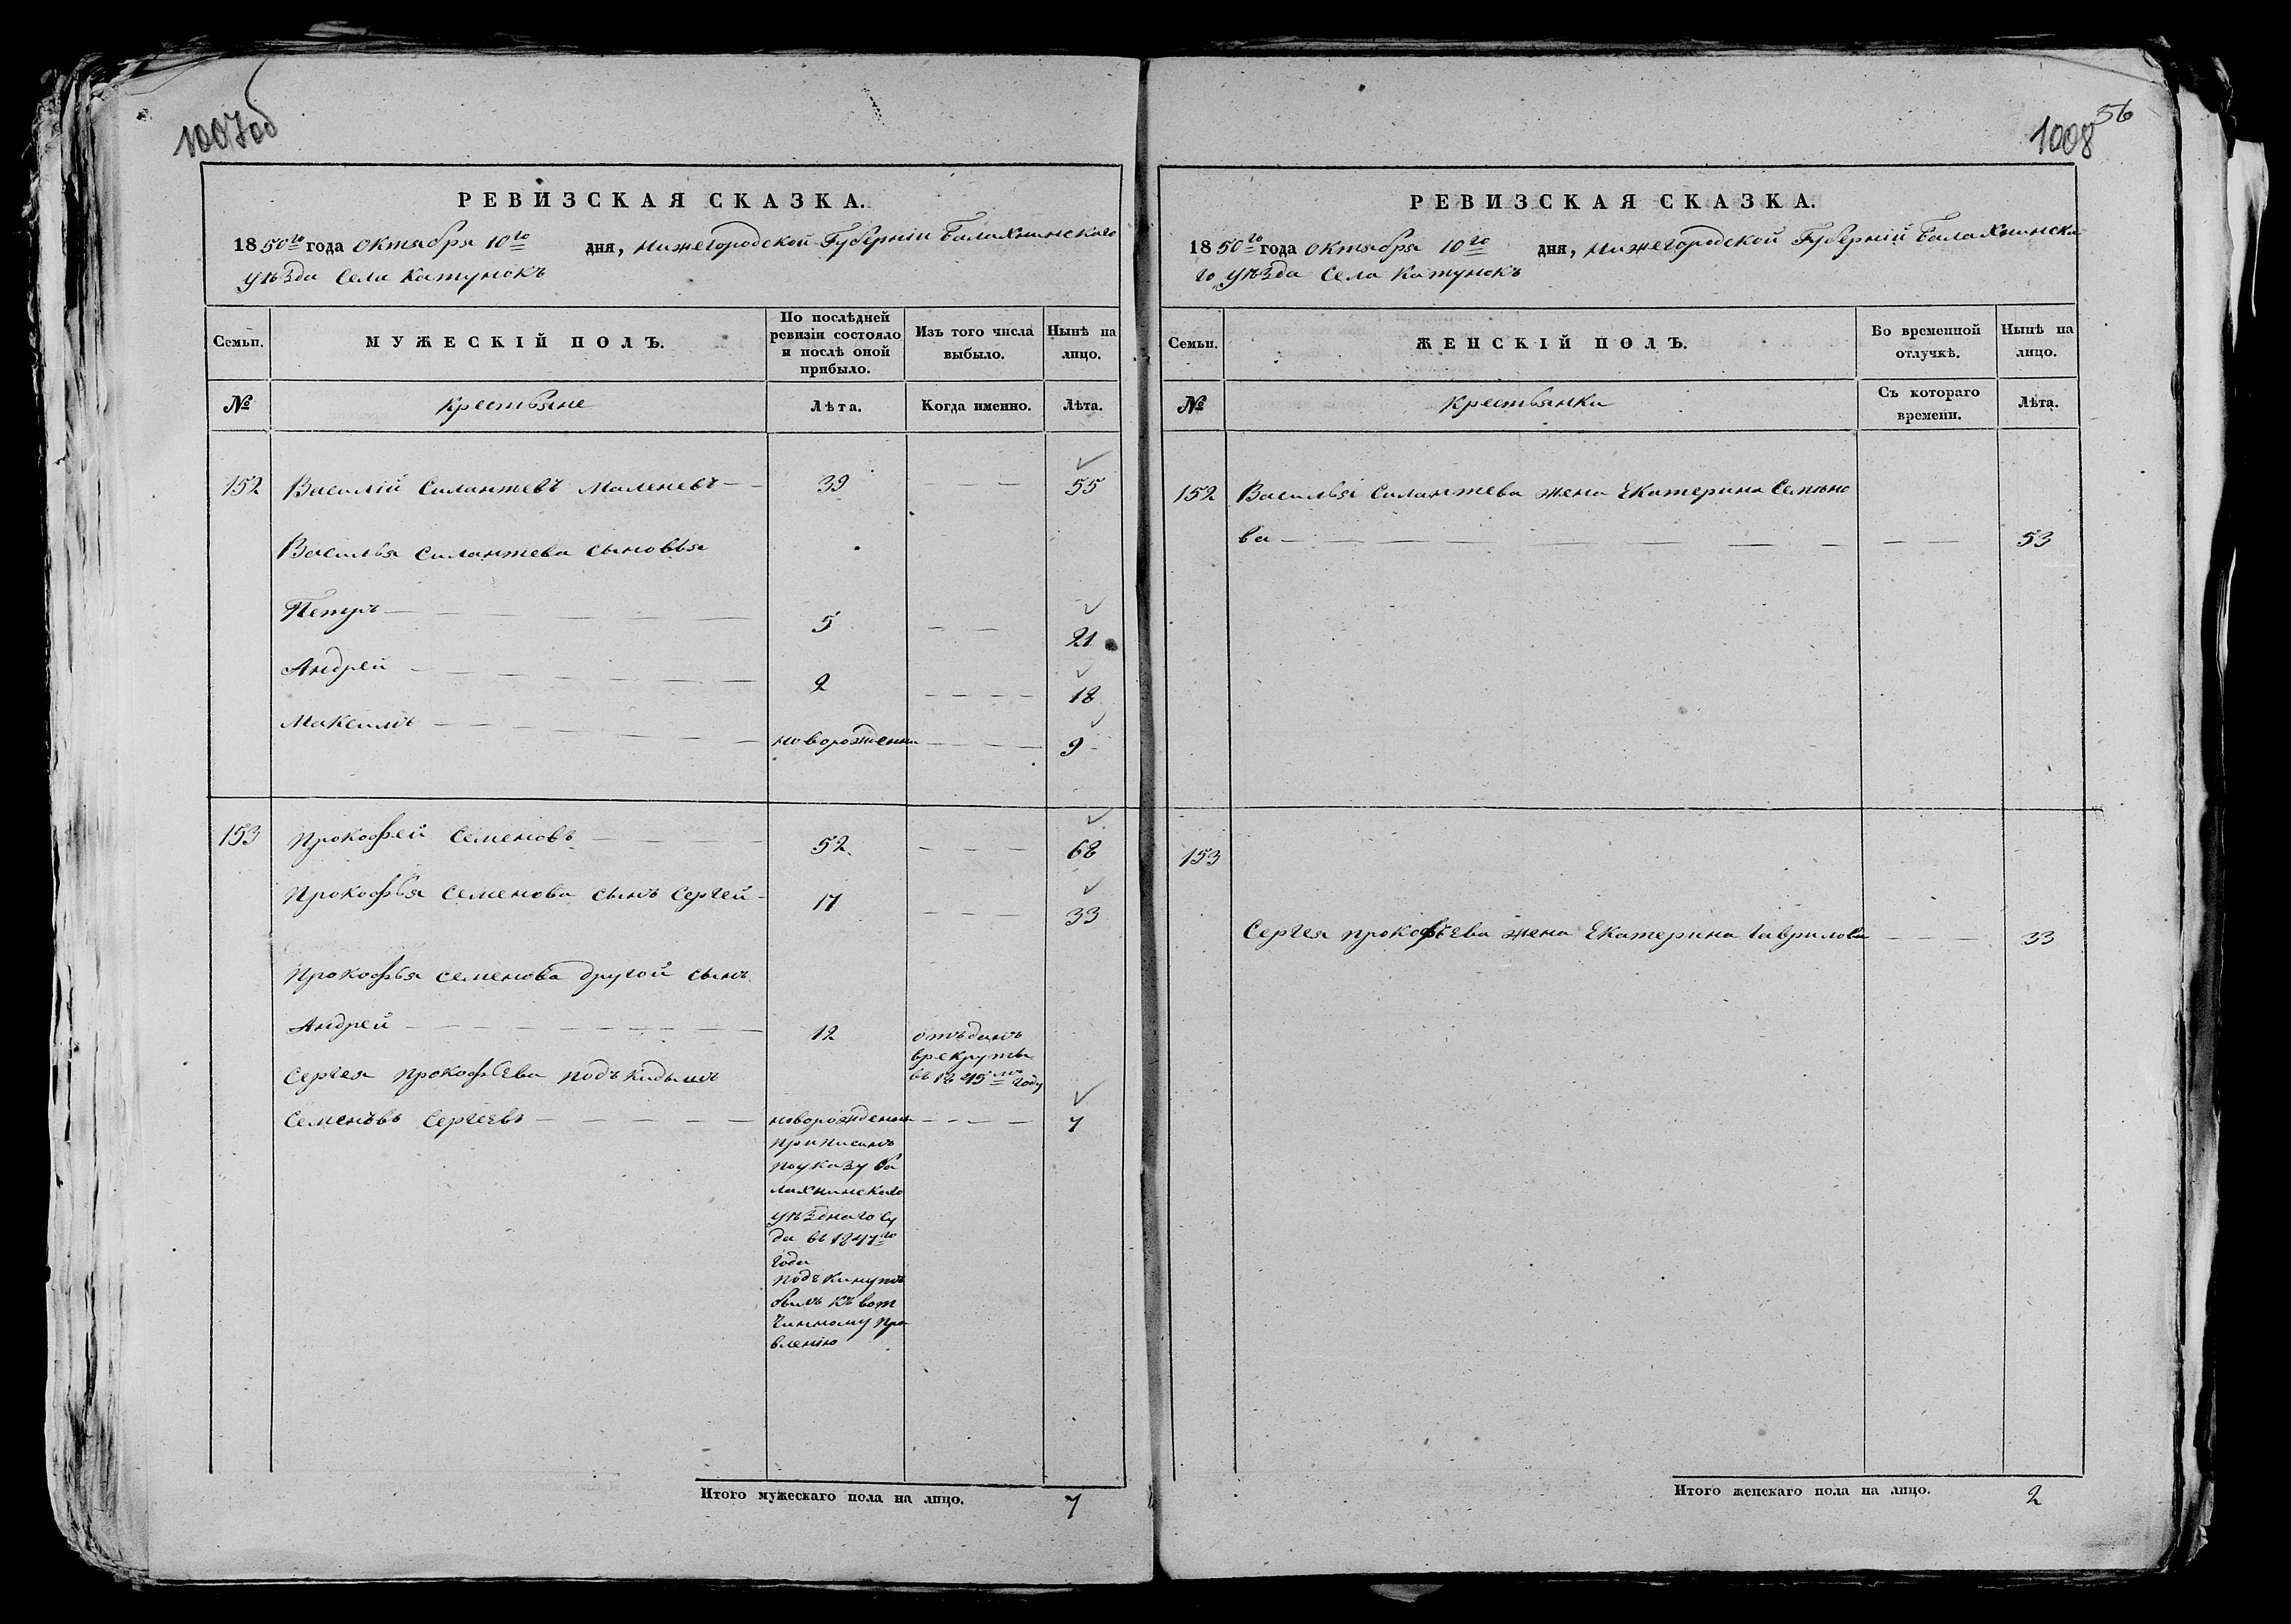 1007об
РЕВИЗСКАЯ СКАЗКА.
1850го года Октября 10го дня, Нижегородской Губерніи Балахнинского
уѣзда Села Катунокъ
Семьи.
МУЖЕСКІЙ ПОЛЪ.
По послѣдней
ревизіи состояло
и послѣ оной
прибыло.
Изъ того числа
выбыло.
Нынѣ на
лицо.
№
Крестьяне
Лѣта.
Когда именно.
Лѣта.
152 Василій Силантевъ Маленевъ 39 55
Василья Силантева сыновья
Петръ 5 21
Андрей 2 18
Максимъ новорожденн 9
153 Прокофей Семеновъ 52 68
Прокофья Семенова сынъ Сергей 17 33
Прокофья Семенова другой сынъ
Андрей 12 отъданъ
врекруты
въ 1845мъ году
Сергея Прокофьева подъкидышъ
Семеновъ Сергеевъ новорожденны 7
приписанъ
поуказу ба
лахнинского
уѣздного су
да въ 1847го
года
подъкинутъ
былъ къ вот
чинному пра
вленію
Итого мужескаго пола на лицо. 7
56
1008
РЕВИЗСКАЯ СКАЗКА.
1850го года Октября 10го дня, Нижегородской Губерніи Балахнинска
го уѣзда Села Катунокъ
Семьи.
ЖЕНСКІЙ ПОЛЪ.
Во временной
отлучкѣ.
Нынѣ на
лицо.
№
Крестьянки
Съ котораго
времени.
Лѣта.
152 Василья Силантева жена Екатерина Семѣно
ва 53
153
Сергея Прокофъева жена Екатерина Гаврилова 33
Итого женскаго пола на лицо. 2